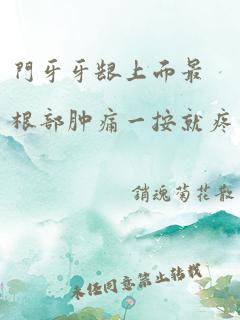 門牙牙龈上而最
根部肿痛一按就疼
銷魂菊花散
未经同意禁止转载